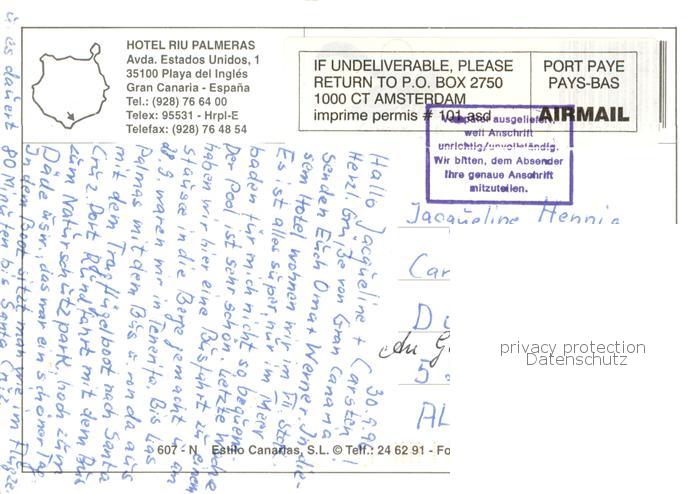 HOTEL RIU PALMERAS
Avda. Estados Unidos, 1
35100 Playa del Inglés
Gran Canaria - España
Tel.: (928) 76 64 00
Telex: 95531 - Hrpl-E
Telefax: (928) 76 48 54
IF UNDELIVERABLE, PLEASE
RETURN TO P.O. BOX 2750
1000 CT AMSTERDAM
imprime permis # 101 asd
PORT PAYE
PAYS-BAS
AIRMAIL
Verspätet ausgeliefert,
weil Anschrift
unrichtig/unvollständig.
Wir bitten, dem Absender
Ihre genaue Anschrift
mitzuteilen.
30.9.96
Hallo Jacqueline + Carsten!
Herzl. Grüße von Gran Canaria
senden Euch Oma + Werner. In die-
sem Hotel wohnen wir im 7. Stock.
Es ist alles super, nur im Meer
baden für mich nicht so bequem.
Der Pool ist sehr schön. Letzte Woche
haben wir hier eine Busfahrt zu einem
Stausee in die Berge gemacht u. am
28.9. waren wir in Tenerifa. Bis Las
Palmas mit dem Bus u. von da aus
mit dem Tragflügelboot nach Santa
Cruz. Dort Rundfahrt mit dem Bus
zum Naturschutzpark hoch zum
usw., das war ein schöner Tag.
In dem Boot sitzt man wie im Flugze
u. es dauert 80 Minuten bis Santa Cruz.
Jacqueline Hennig
Car
D
An
5
AL
privacy protection
Datenschutz
607 - N Estilo Canarias, S.L. © Telf.: 24 62 91 - Fo